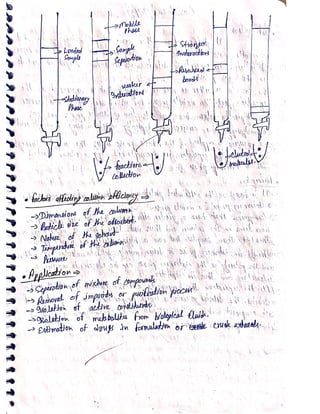 Mobile
Phase
Loaded
Sample
Sample
Separation
Stronger
Interactions
weaker
Interactions
Resolved
bands
Stationary
Phase
fraction
collection
eluted
molecules
• Factors affecting column efficiency →
→ Dimensions of the column
→ Particle size of the adsorbent
→ Nature of the solvent
→ Temperature of the column
→ Pressure
• Application →
→ Separation of mixture of compounds
→ Removal of impurities or purification process
→ Isolation of active constituents
→ Isolation of metabolites from biological fluids.
→ Estimation of drugs in formulation or crude extracts.